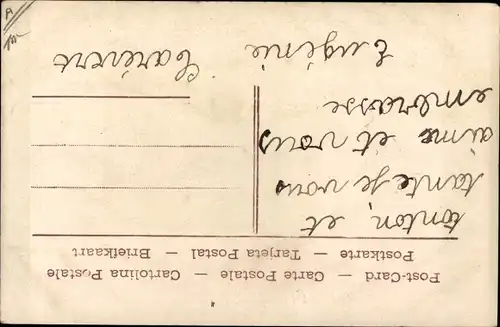 Post-Card — Carte Postale — Cartolina Postale
Postkarte — Tarjeta Postal — Briefkaart
tonton, et
tante je vous
aime et vous
embrasse
Eugénie